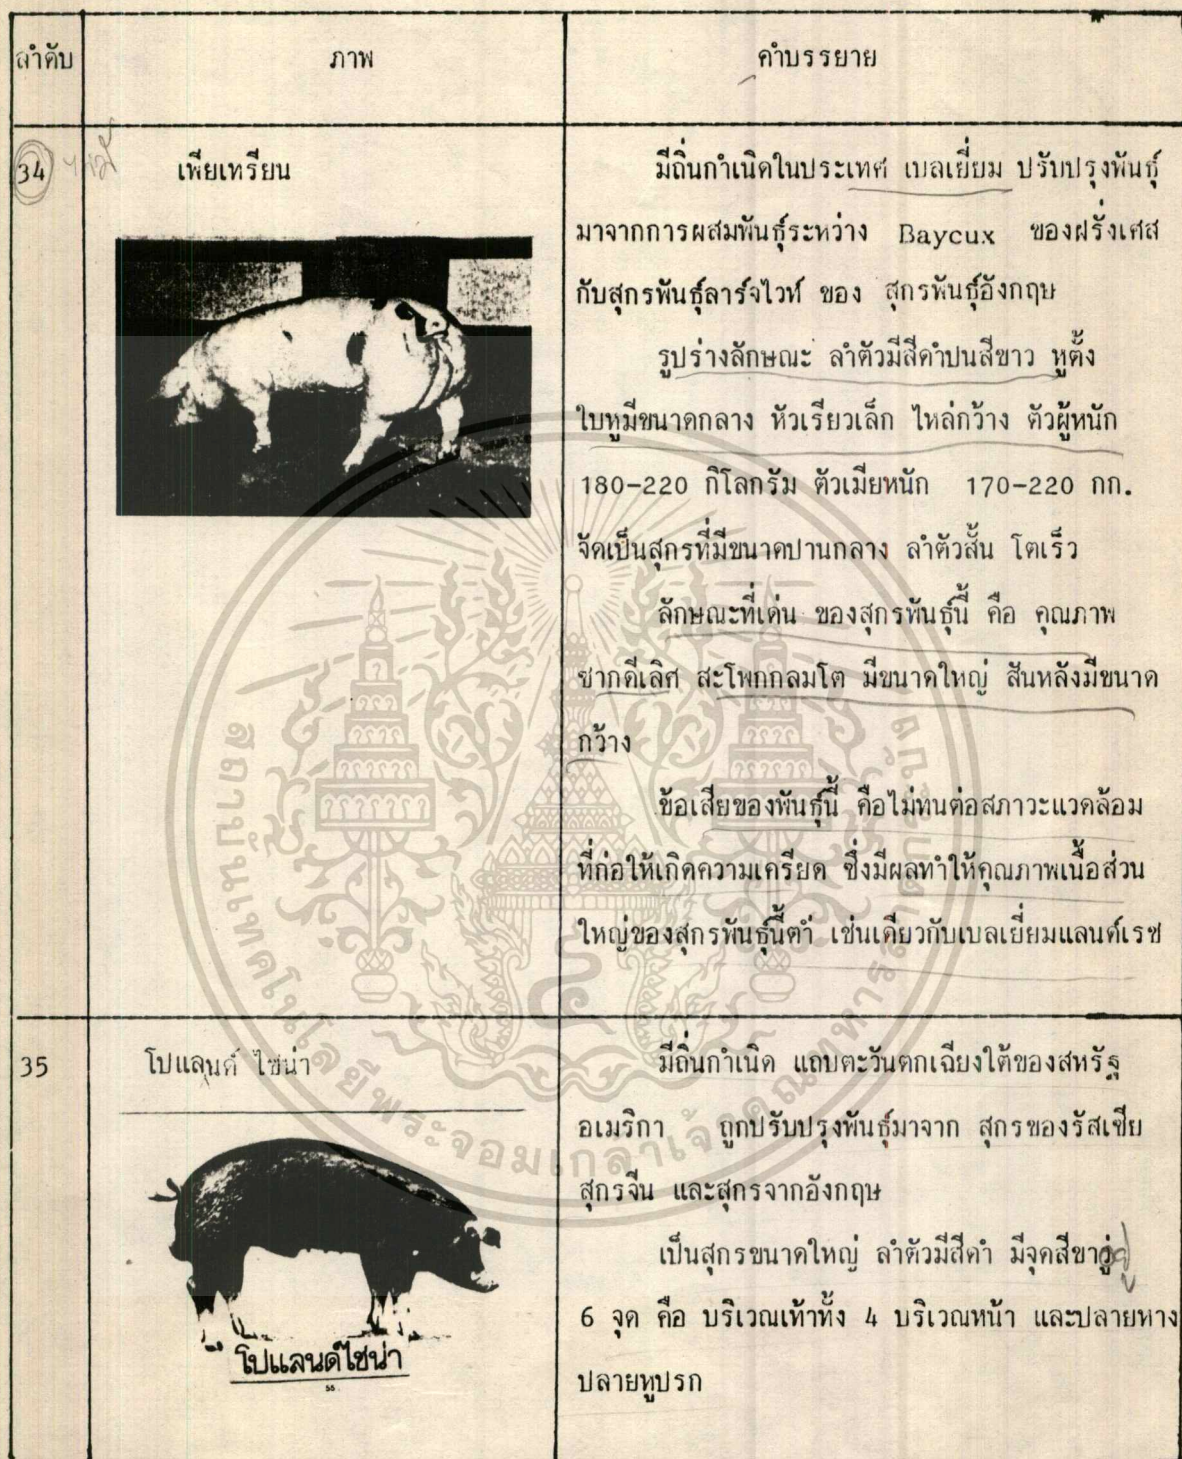 ลำดับ
ภาพ
คำบรรยาย
34
เพียเทรียน
มีถิ่นกำเนิดในประเทศ เบลเยี่ยม ปรับปรุงพันธุ์
มาจากการผสมพันธุ์ระหว่าง Baycux ของฝรั่งเศส
กับสุกรพันธุ์ลาร์จไวท์ ของ สุกรพันธุ์อังกฤษ
รูปร่างลักษณะ ลำตัวมีสีดำปนสีขาว หูตั้ง
ใบหูมีขนาดกลาง หัวเรียวเล็ก ไหล่กว้าง ตัวผู้หนัก
180-220 กิโลกรัม ตัวเมียหนัก 170-220 กก.
จัดเป็นสุกรที่มีขนาดปานกลาง ลำตัวสั้น โตเร็ว
ลักษณะที่เด่น ของสุกรพันธุ์นี้ คือ คุณภาพ
ซากดีเลิศ สะโพกกลมโต มีขนาดใหญ่ สันหลังมีขนาด
กว้าง
ข้อเสียของพันธุ์นี้ คือไม่ทนต่อสภาวะแวดล้อม
ที่ก่อให้เกิดความเครียด ซึ่งมีผลทำให้คุณภาพเนื้อส่วน
ใหญ่ของสุกรพันธุ์นี้ต่ำ เช่นเดียวกับเบลเยี่ยมแลนด์เรซ
35
โปแลนด์ ไชน่า
มีถิ่นกำเนิด แถบตะวันตกเฉียงใต้ของสหรัฐ
อเมริกา ถูกปรับปรุงพันธุ์มาจาก สุกรของรัสเซีย
สุกรจีน และสุกรจากอังกฤษ
เป็นสุกรขนาดใหญ่ ลำตัวมีสีดำ มีจุดสีขาวอยู่
6 จุด คือ บริเวณเท้าทั้ง 4 บริเวณหน้า และปลายหาง
ปลายหูปรก
โปแลนด์ไชน่า
55
สถาบันเทคโนโลยีพระจอมเกล้าเจ้าคุณทหารลาดกระบัง